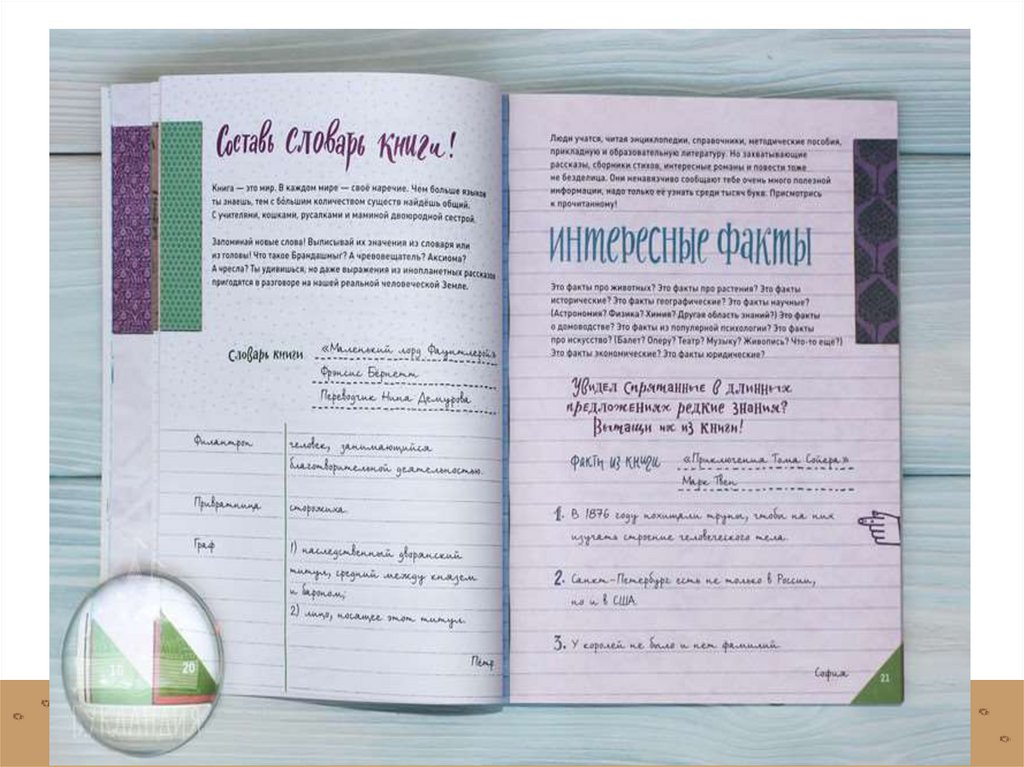 Составь словарь книги!
Книга — это мир. В каждом мире — своё наречие. Чем больше языков
ты знаешь, тем с бóльшим количеством существ найдёшь общий.
С учителями, кошками, русалками и маминой двоюродной сестрой.
Запоминай новые слова! Выписывай их значения из словаря или
из головы! Что такое Брандашмыг? А чревовещатель? Аксиома?
А чресла? Ты удивишься, но даже выражения из инопланетных рассказов
пригодятся в разговоре на нашей реальной человеческой Земле.
Словарь книги «Маленький лорд Фаунтлерой»
Фрэнсис Бёрнетт
Переводчик Нина Демурова
Филантроп человек, занимающийся
благотворительной деятельностью.
Привратница сторожиха.
Граф 1) наследственный дворянский
титул, средний между князем
и бароном;
2) лицо, носящее этот титул.
Пётр
10
20
Люди учатся, читая энциклопедии, справочники, методические пособия,
прикладную и образовательную литературу. Но захватывающие
рассказы, сборники стихов, интересные романы и повести тоже
не безделица. Они ненавязчиво сообщают тебе очень много полезной
информации, надо только её узнать среди тысяч букв. Присмотрись
к прочитанному!
ИНТЕРЕСНЫЕ ФАКТЫ
Это факты про животных? Это факты про растения? Это факты
исторические? Это факты географические? Это факты научные?
(Астрономия? Физика? Химия? Другая область знаний?) Это факты
о домоводстве? Это факты из популярной психологии? Это факты
про искусство? (Балет? Оперу? Театр? Музыку? Живопись? Что-то ещё?)
Это факты экономические? Это факты юридические?
Увидел спрятанные в длинных
предложениях редкие знания?
Вытащи их из книги!
Факты из книги «Приключения Тома Сойера»
Марк Твен
1. В 1876 году похищали трупы, чтобы на них
изучать строение человеческого тела.
2. Санкт-Петербург есть не только в России,
но и в США.
3. У королей не было и нет фамилий.
София
21